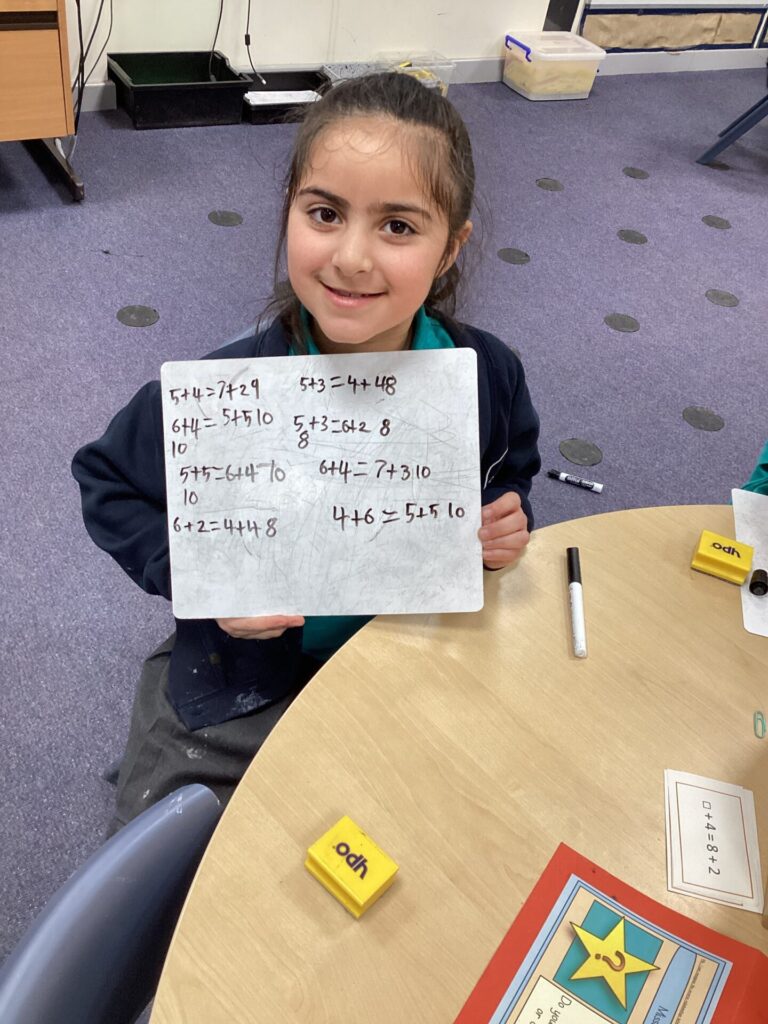 5+4=7+2 9
5+3=4+4 8
6+4=5+5 10
10
5+3=6+2 8
8
5+5=6+4 10
10
6+4=7+3 10
6+2=4+4 8
4+6=5+5 10
ypo.
ypo.
□+4=8+2
?
Miss
Do you
or